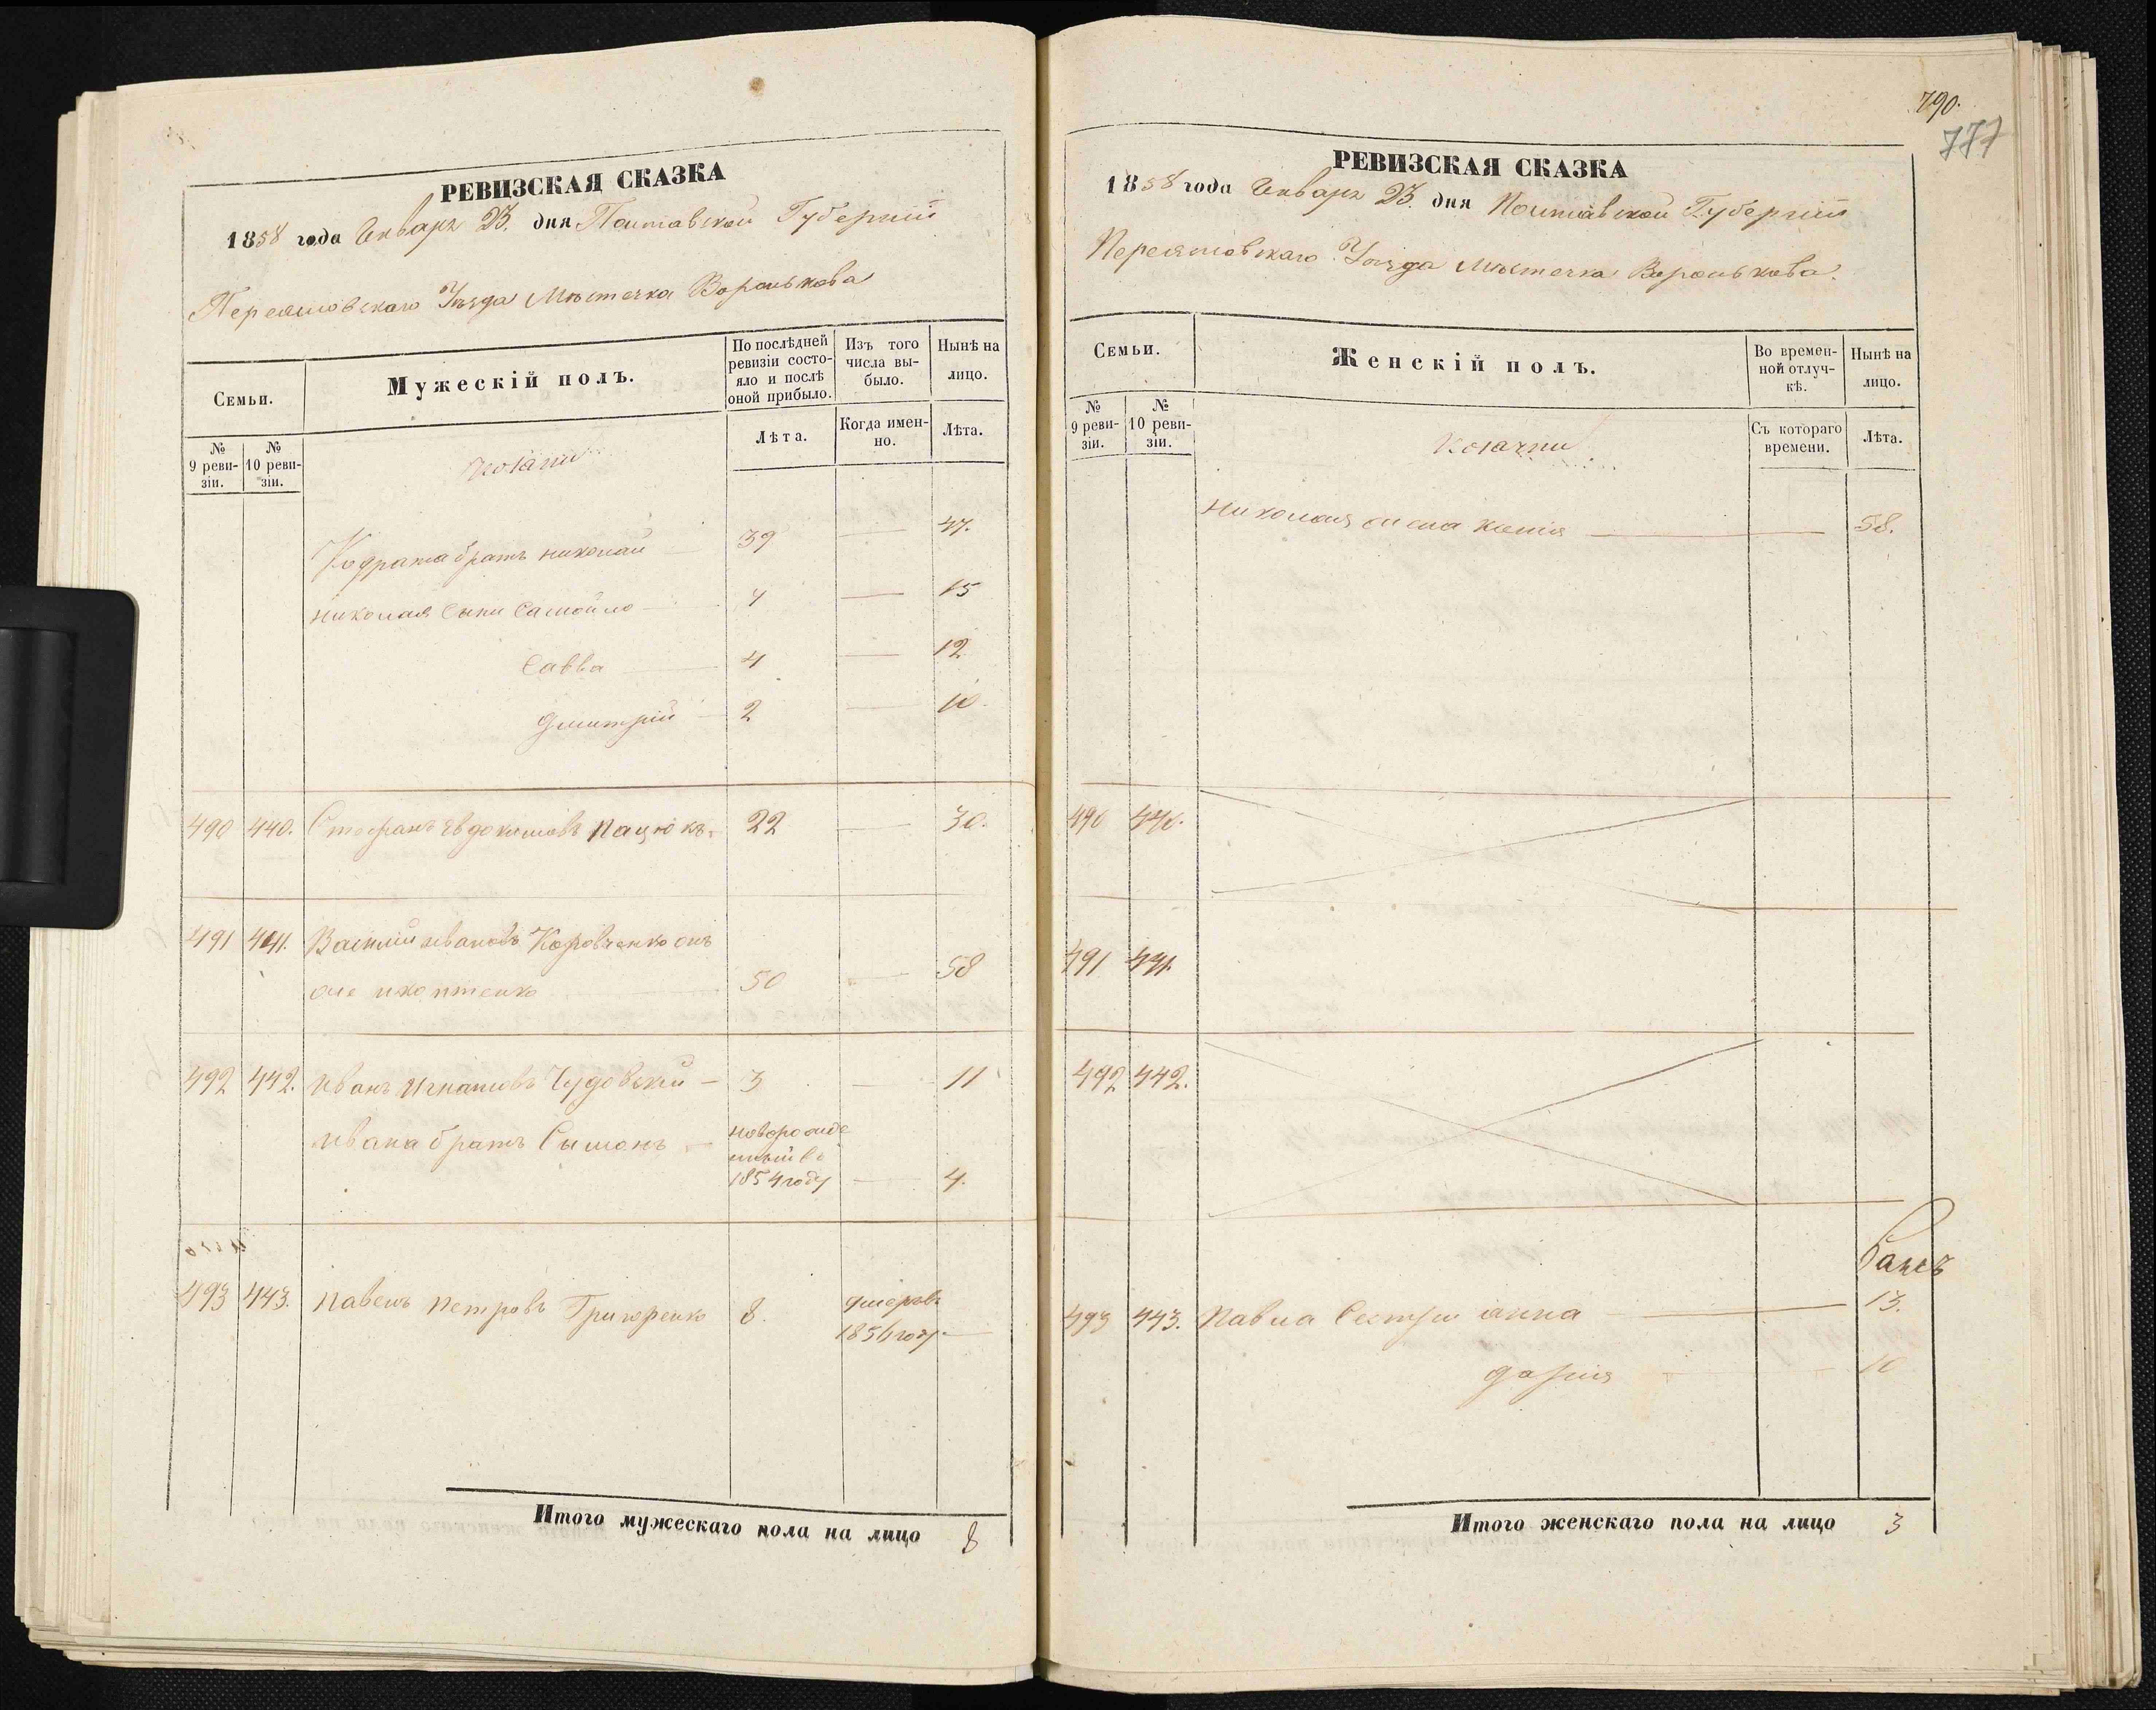 РЕВИЗСКАЯ СКАЗКА
1858 года Января 23. дня Полтавской Губерніи
Переяловскаго Уѣзда Мѣстечка Воронькова
Семьи.
Мужескій полъ.
По послѣдней ревизіи состояло и послѣ оной прибыло.
Изъ того числа выбыло.
Нынѣ на лицо.
№ 9 ревизіи.
№ 10 ревизіи.
Козаки
Лѣта.
Когда именно.
Лѣта.
Кодрата братъ николай 39 — 47.
николая сыни Самойло 7 — 15
Савва 4 — 12
дмитрій 2 — 10.
490 440. Стефанъ Евдокимовъ Пацюкъ 22 — 30.
491 441. Василій ивановъ Коровченко онъ
же 50 — 58
492 442. иванъ Игнатовъ Чудовскій — 3 — 11
ивана братъ Симонъ — новорожде
ный въ
1854 году — 4.
493 443. Павелъ Петровъ Григоренко 8. умеръ въ
1856 году —
Итого мужескаго пола на лицо 8
790.
777
РЕВИЗСКАЯ СКАЗКА
1858 года Января 23. дня Полтавской Губерніи
Переяловскаго Уѣзда Мѣстечка Воронькова.
Семьи.
Женскій полъ.
Во временной отлучкѣ.
Нынѣ на лицо.
№ 9 ревизіи.
№ 10 ревизіи.
Козачки
Съ котораго времени.
Лѣта.
Николая жена Ксенія — 58.
490 440.
491 441.
492 442.
493 443. Павла Сестри анна — 13.
дарія — 10
Итого женскаго пола на лицо 3